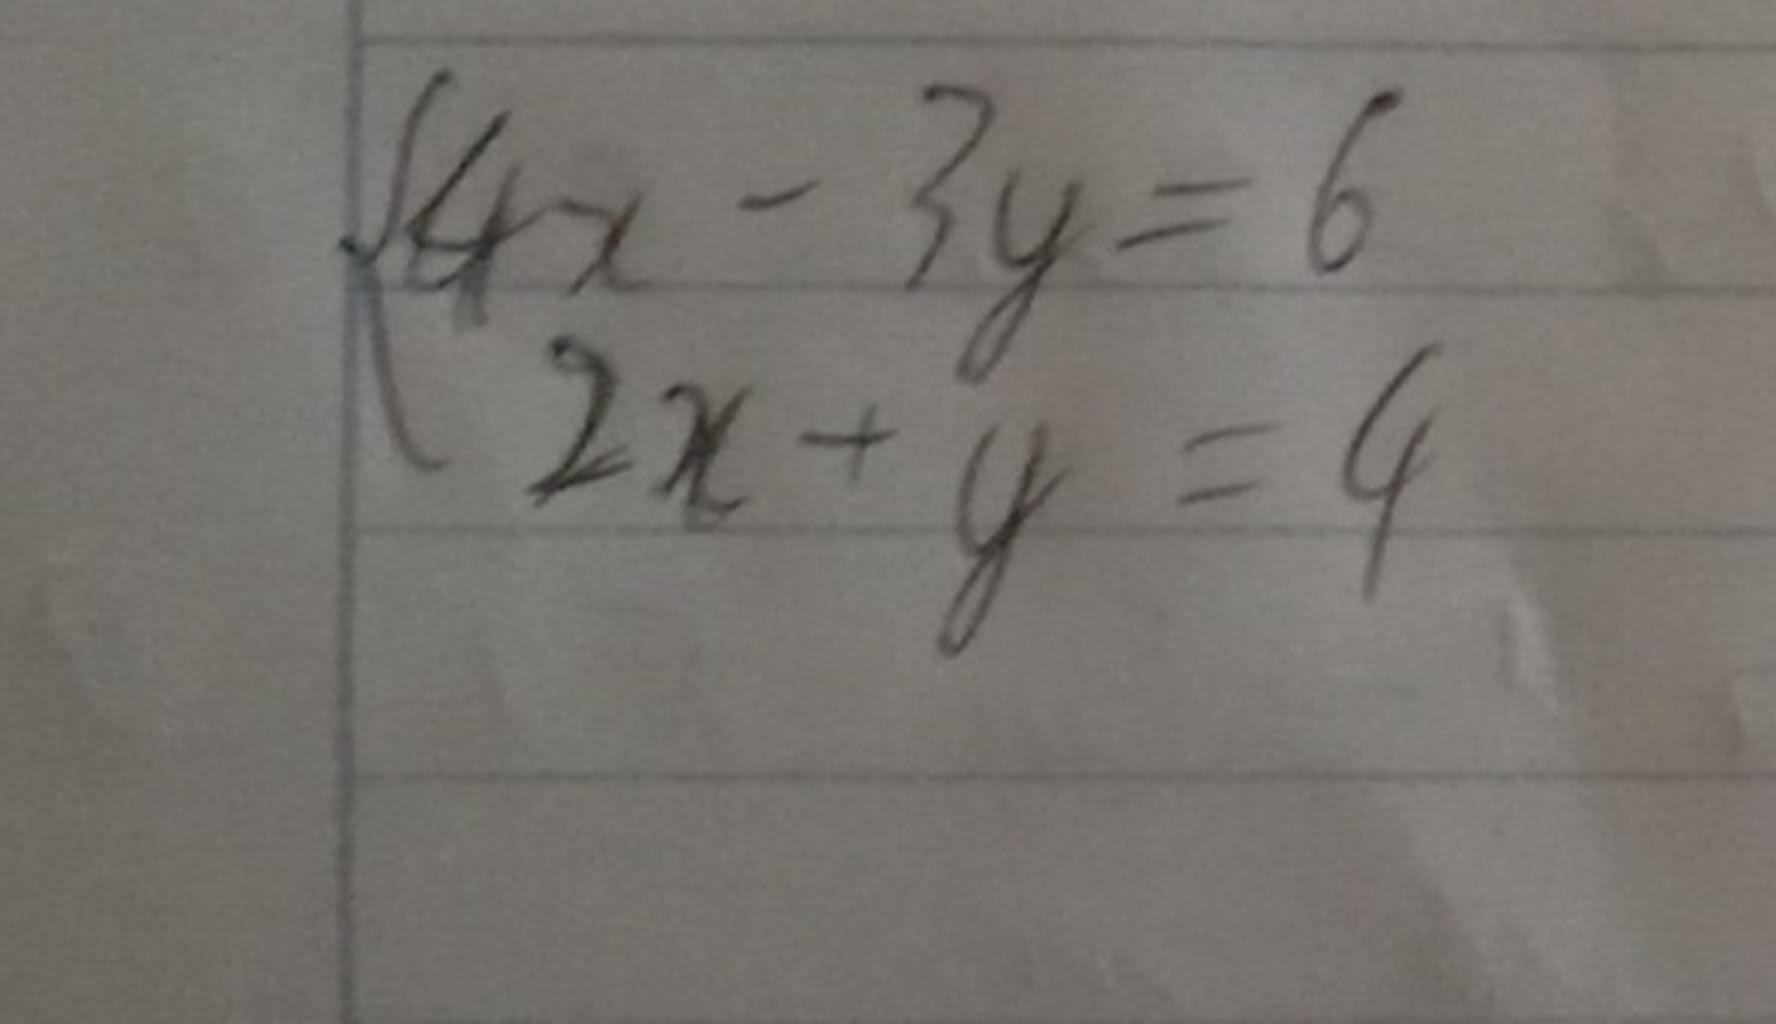 {4x - 3y = 6
2x + y = 4